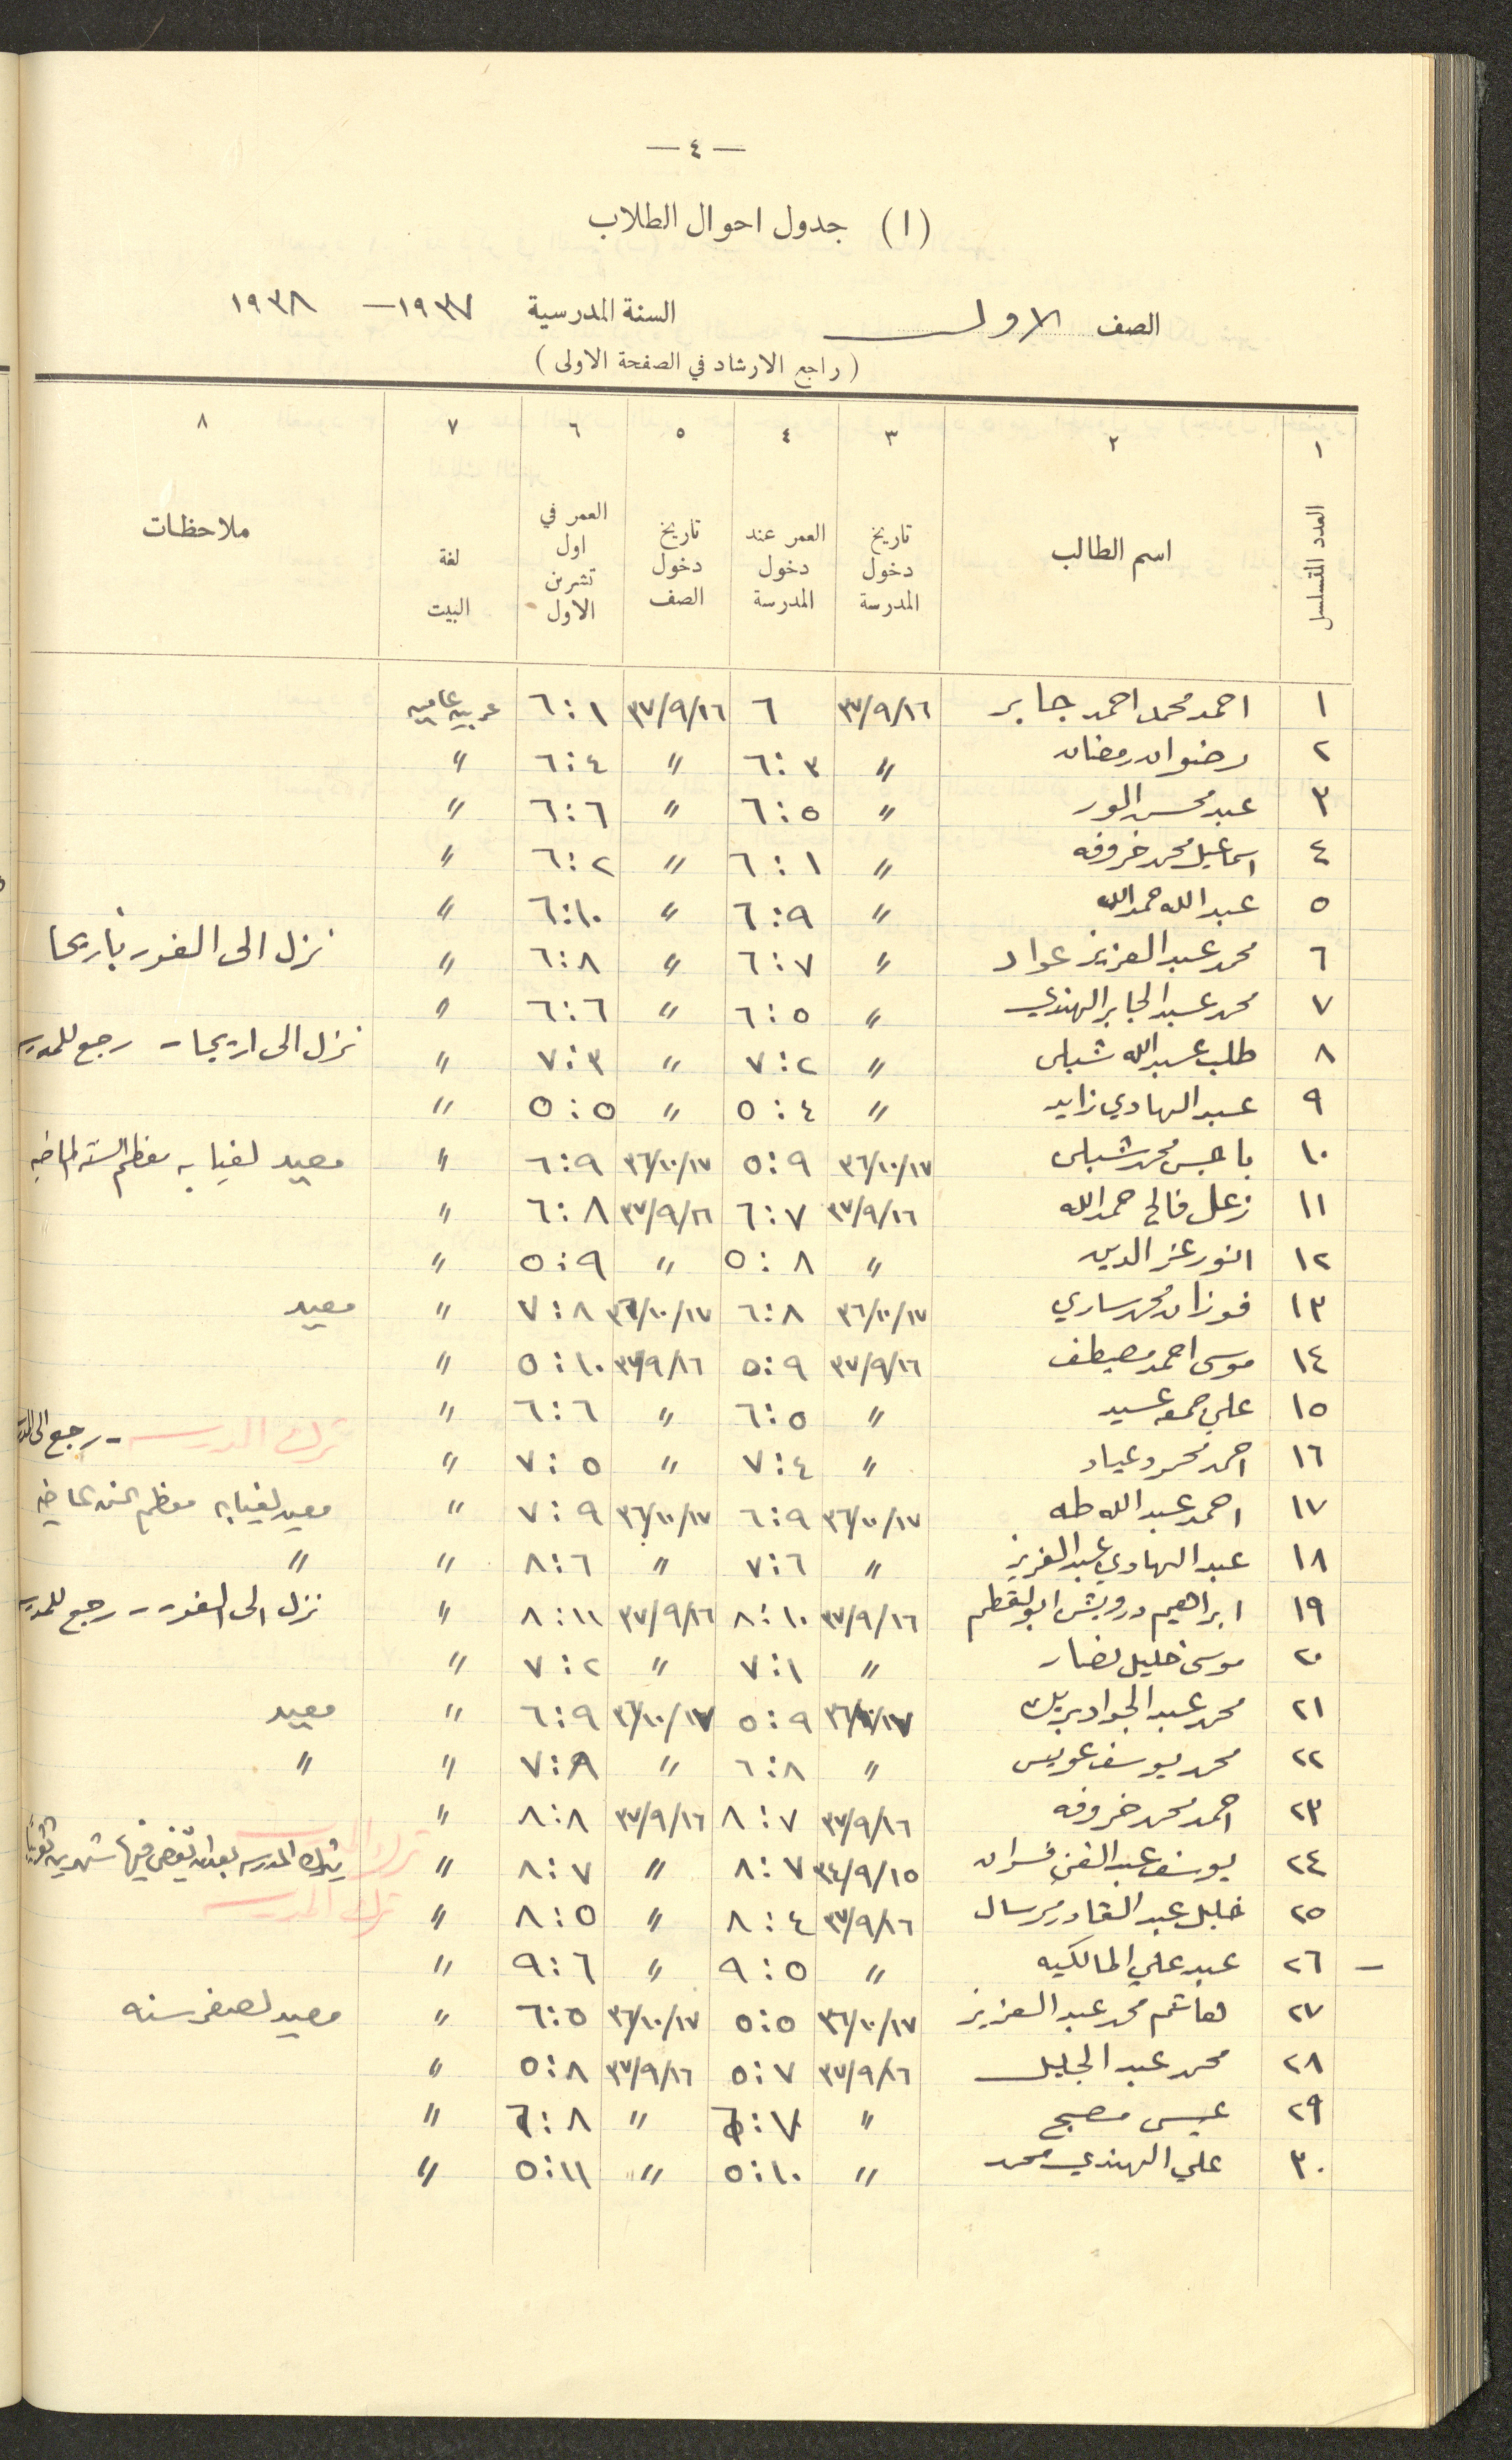 — ٤ —
(١) جدول احوال الطلاب
الصف الاول السنة المدرسية ١٩٣٧ — ١٩٣٨
(راجع الارشاد في الصفحة الاولى)
١ ٢ ٣ ٤ ٥ ٦ ٧ ٨
العدد المتسلسل اسم الطالب تاريخ دخول المدرسة العمر عند دخول المدرسة تاريخ دخول الصف العمر في اول تشرين الاول لغة البيت ملاحظات
١ احمد محمد احمد جابر ٣٧/٩/١٦ ٦ ٣٧/٩/١٦ ٦:١ عربيه عاميه
٢ رضوان رمضان " ٦:٣ " ٦:٤ "
٣ عبد محسن " ٦:٥ " ٦:٦ "
٤ اسماعيل محمد خروفه " ٦:١ " ٦:٢ "
٥ عبد الله حمد الله " ٦:٩ " ٦:١٠ "
٦ محمد عبد العزيز عواد " ٦:٧ " ٦:٨ " نزل الى الغور باريحا
٧ محمد عبد الجابر الهندي " ٦:٥ " ٦:٦ "
٨ طلب عبد الله شبلي " ٧:٢ " ٧:٣ " نزل الى اريحا - رجع للمدرسه
٩ عبد الهادي زايد " ٥:٤ " ٥:٥ "
١٠ باجس محمد شبلي ٣٦/١٠/١٧ ٥:٩ ٣٦/١٠/١٧ ٦:٩ " معيد لغيابه معظم السنه الماضيه
١١ زعل فالح حمد الله ٣٧/٩/١٦ ٦:٧ ٣٧/٩/١٦ ٦:٨ "
١٢ انور عز الدين " ٥:٨ " ٥:٩ "
١٣ فوزان محمد ساري ٣٦/١٠/١٧ ٦:٨ ٣٦/١٠/١٧ ٧:٨ " معيد
١٤ موسى احمد مصيطف ٣٧/٩/١٦ ٥:٩ ٣٧/٩/١٦ ٥:١٠ "
١٥ علي جمعه عسيد " ٦:٥ " ٦:٦ " ترك المدرسه - رجع الى
١٦ احمد محمود عياد " ٧:٤ " ٧:٥ "
١٧ احمد عبد الله طه ٣٦/١٠/١٧ ٦:٩ ٣٦/١٠/١٧ ٧:٩ " معيد لغيابه معظم السنه الماضيه
١٨ عبد الهادي عبد العزيز " ٧:٦ " ٨:٦ " "
١٩ ابراهيم درويش ابو لقطم ٣٧/٩/١٦ ٨:١٠ ٣٧/٩/١٦ ٨:١١ " نزل الى الغور - رجع للمدرسه
٢٠ موسى خليل نصار " ٧:١ " ٧:٢ "
٢١ محمد عبد الجواد بريك ٣٦/١٠/١٧ ٥:٩ ٣٦/١٠/١٧ ٦:٩ " معيد
٢٢ محمد يوسف عويس " ٦:٨ " ٧:٨ " "
٢٣ احمد محمد خروفه ٣٧/٩/١٦ ٨:٧ ٣٧/٩/١٦ ٨:٨ "
٢٤ يوسف عبد الغني ٣٤/٩/١٥ ٨:٧ " ٨:٧ " ترك المدرسه بعد ان قضى فيها شهرين تقريباً
٢٥ خليل عبد القادر مرسال ٣٧/٩/١٦ ٨:٤ " ٨:٥ " ترك المدرسه
— ٢٦ عبد علي المالكيه " ٩:٥ " ٩:٦ "
٢٧ هاشم محمد عبد العزيز ٣٦/١٠/١٧ ٥:٥ ٣٦/١٠/١٧ ٦:٥ " معيد لصغر سنه
٢٨ محمد عبد الجليل ٣٧/٩/١٦ ٥:٧ ٣٧/٩/١٦ ٥:٨ "
٢٩ عيسى مصبح " ٦:٧ " ٦:٨ "
٣٠ علي الهندي محمد " ٥:١٠ " ٥:١١ "